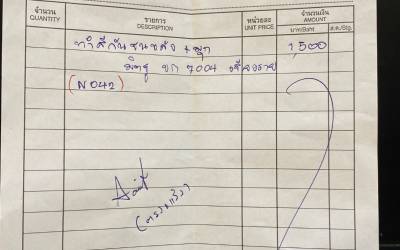 จำนวน รายการ หน่วยละ จำนวนเงิน
QUANTITY DESCRIPTION UNIT PRICE AMOUNT
บาท/Baht ส.ต./Stg.
ทำสีกันชนหลัง + มุก 1,500
7004 เชียงราย
(N042)